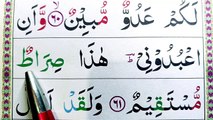 لَكُمْ عَدُوٌّ مُّبِيْنٌ ﴿٦٠﴾ وَّاَنِ
اعْبُدُوْنِيْ ؕ هٰذَا صِرَاطٌ
مُّسْتَقِيْمٌ ﴿٦١﴾ وَلَقَدْ